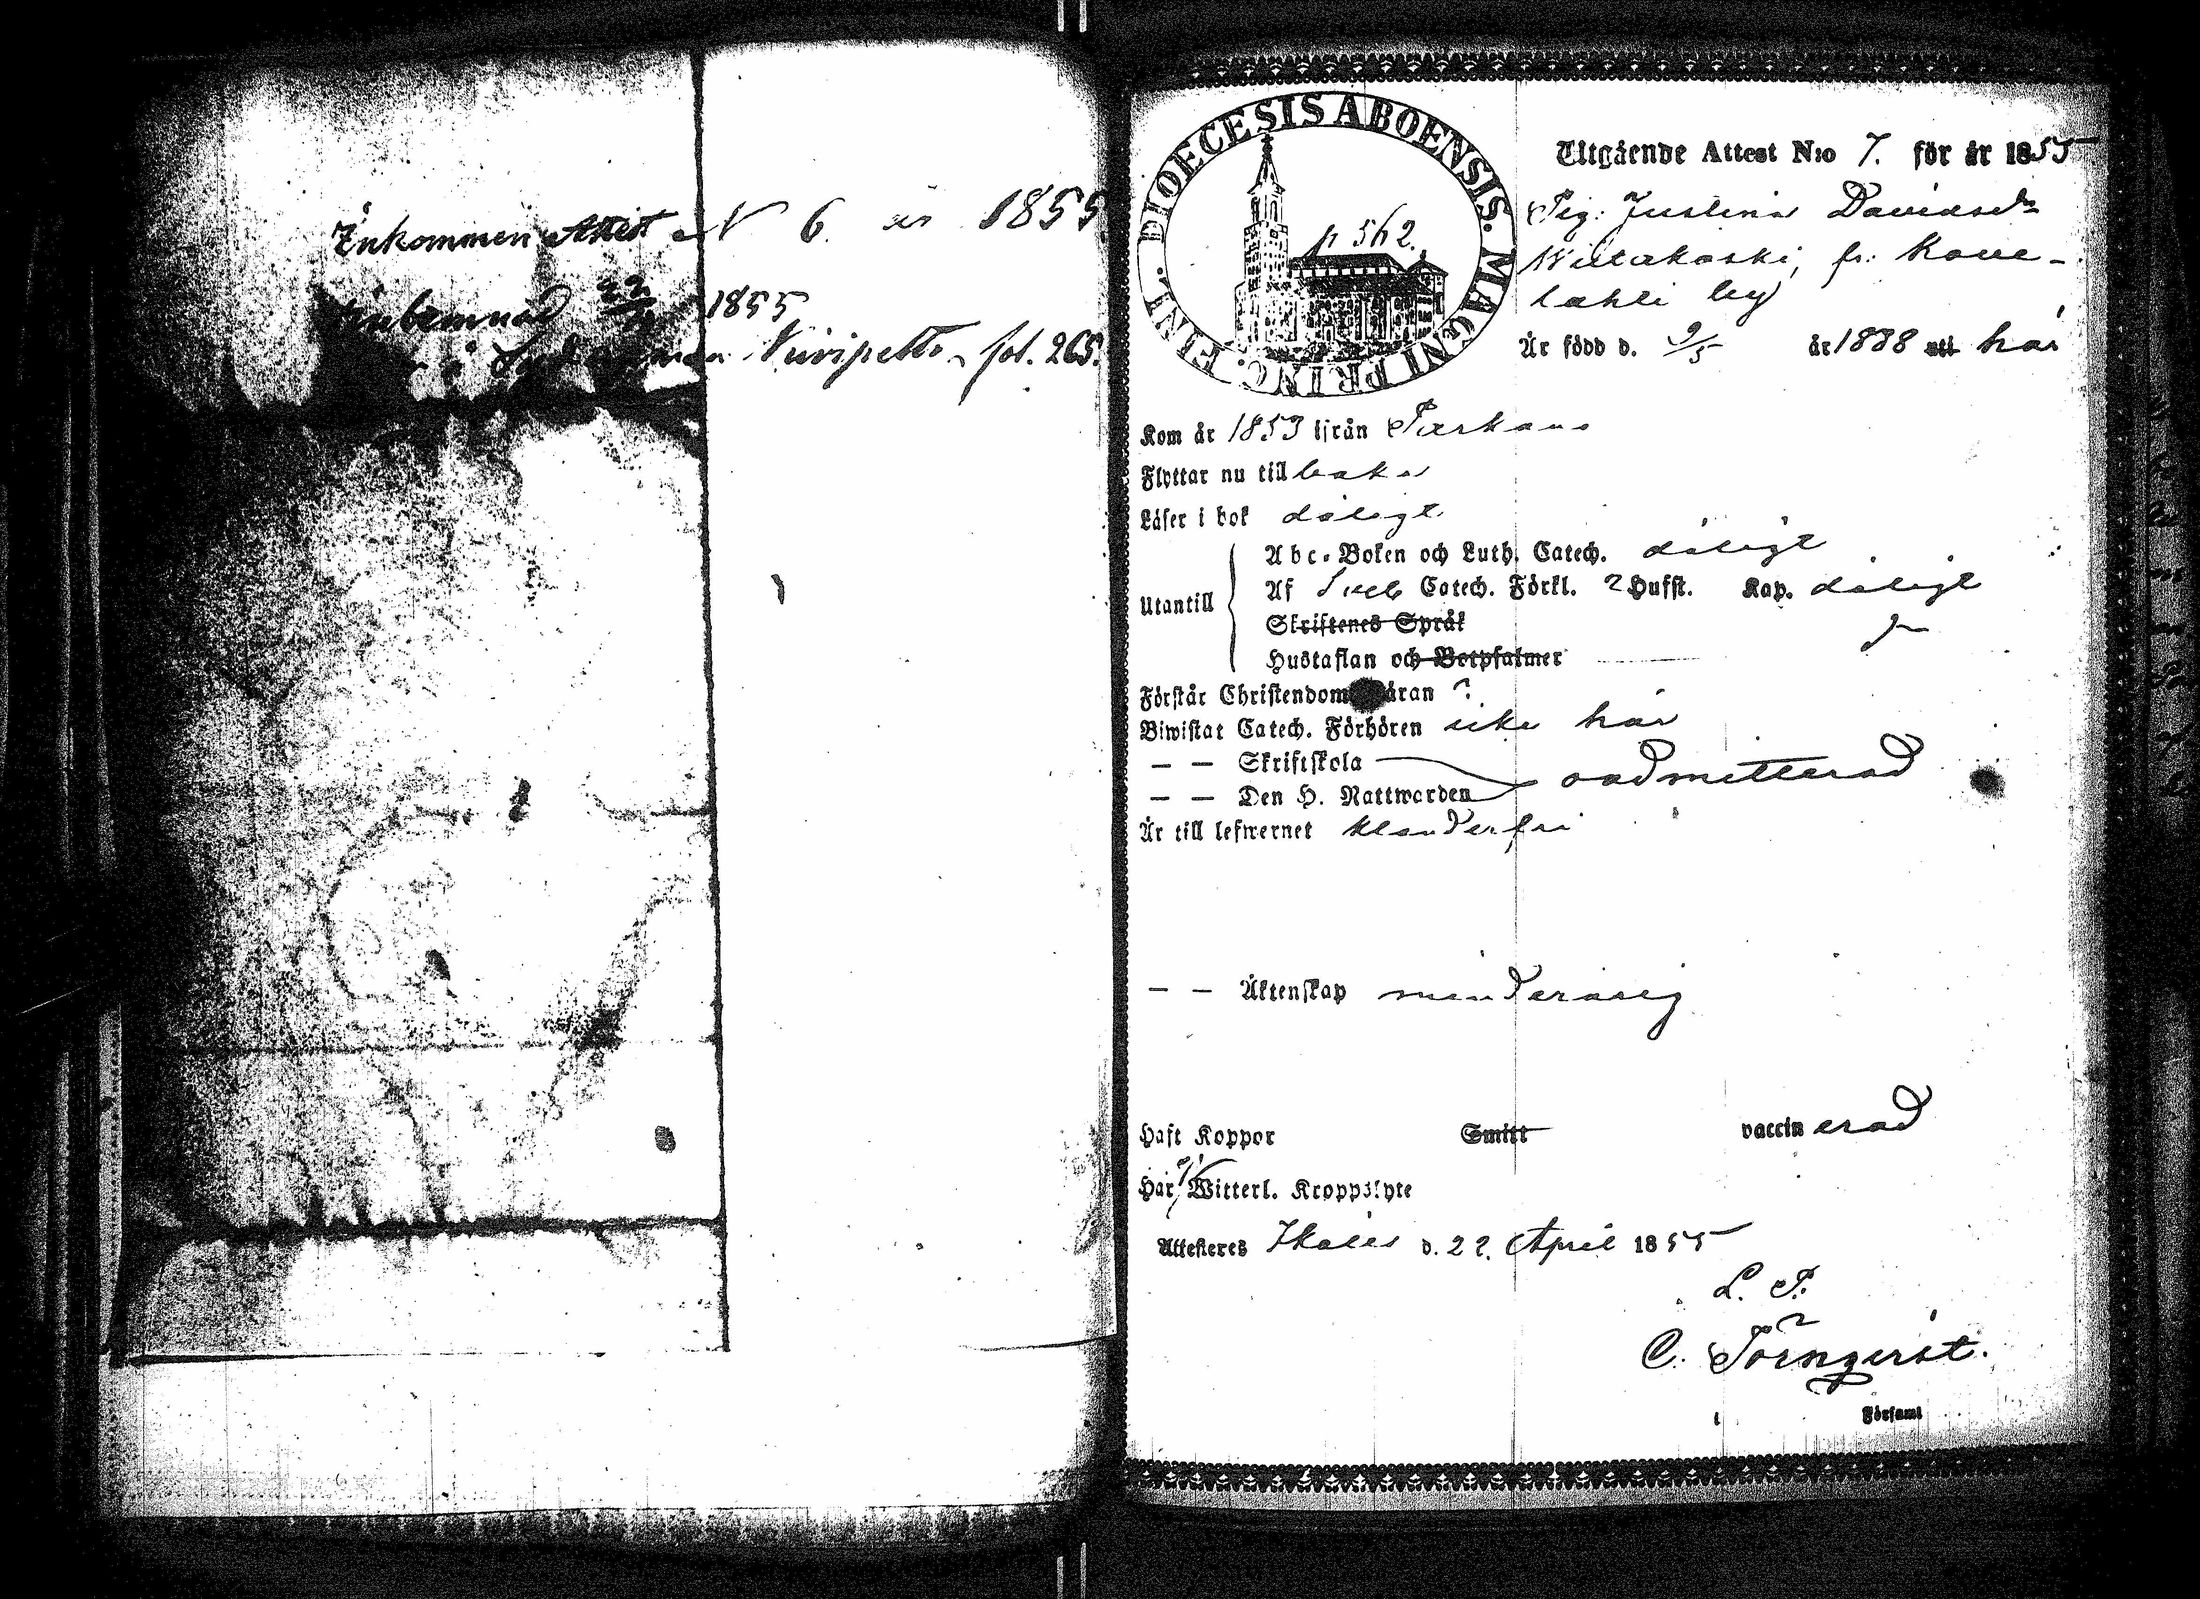 Inkommen Attest N 6. år 1855.
1855
Nuvipetto fol. 265.
DIOECESIS ABOENSIS. MAGNI PRINC. FINL.
p 562.
Utgående Attest N:o 7. för år 1855
Pig: Justina Davidsdr
fr: Kove-
lahti by
Är född d. 9/5 år 1838 uti här
Kom år 1853 ifrån Parkano
Flyttar nu till baka
Läser i bok dåligt
Utantill
Abc-Boken och Luth. Catech. dåligt
Af Sveb Catech. Förkl. 2 Hufst. Kap. dåligt
Skriftenes Språk
Hustaflan och Botpsalmer
Förstår Christendom äran ?
Biwistat Catech. Förhören icke här
— — Skriftskola
oadmitterad
— — Den H. Nattwarden
Är till lefwernet klanderfri
— — Äktenskap minderårig
Haft Koppor Smitt vaccinerad
Har Witterl. Kroppslyte
Attesteras Ikalis d. 22. April 1855
C. Törnqvist.
i Församl